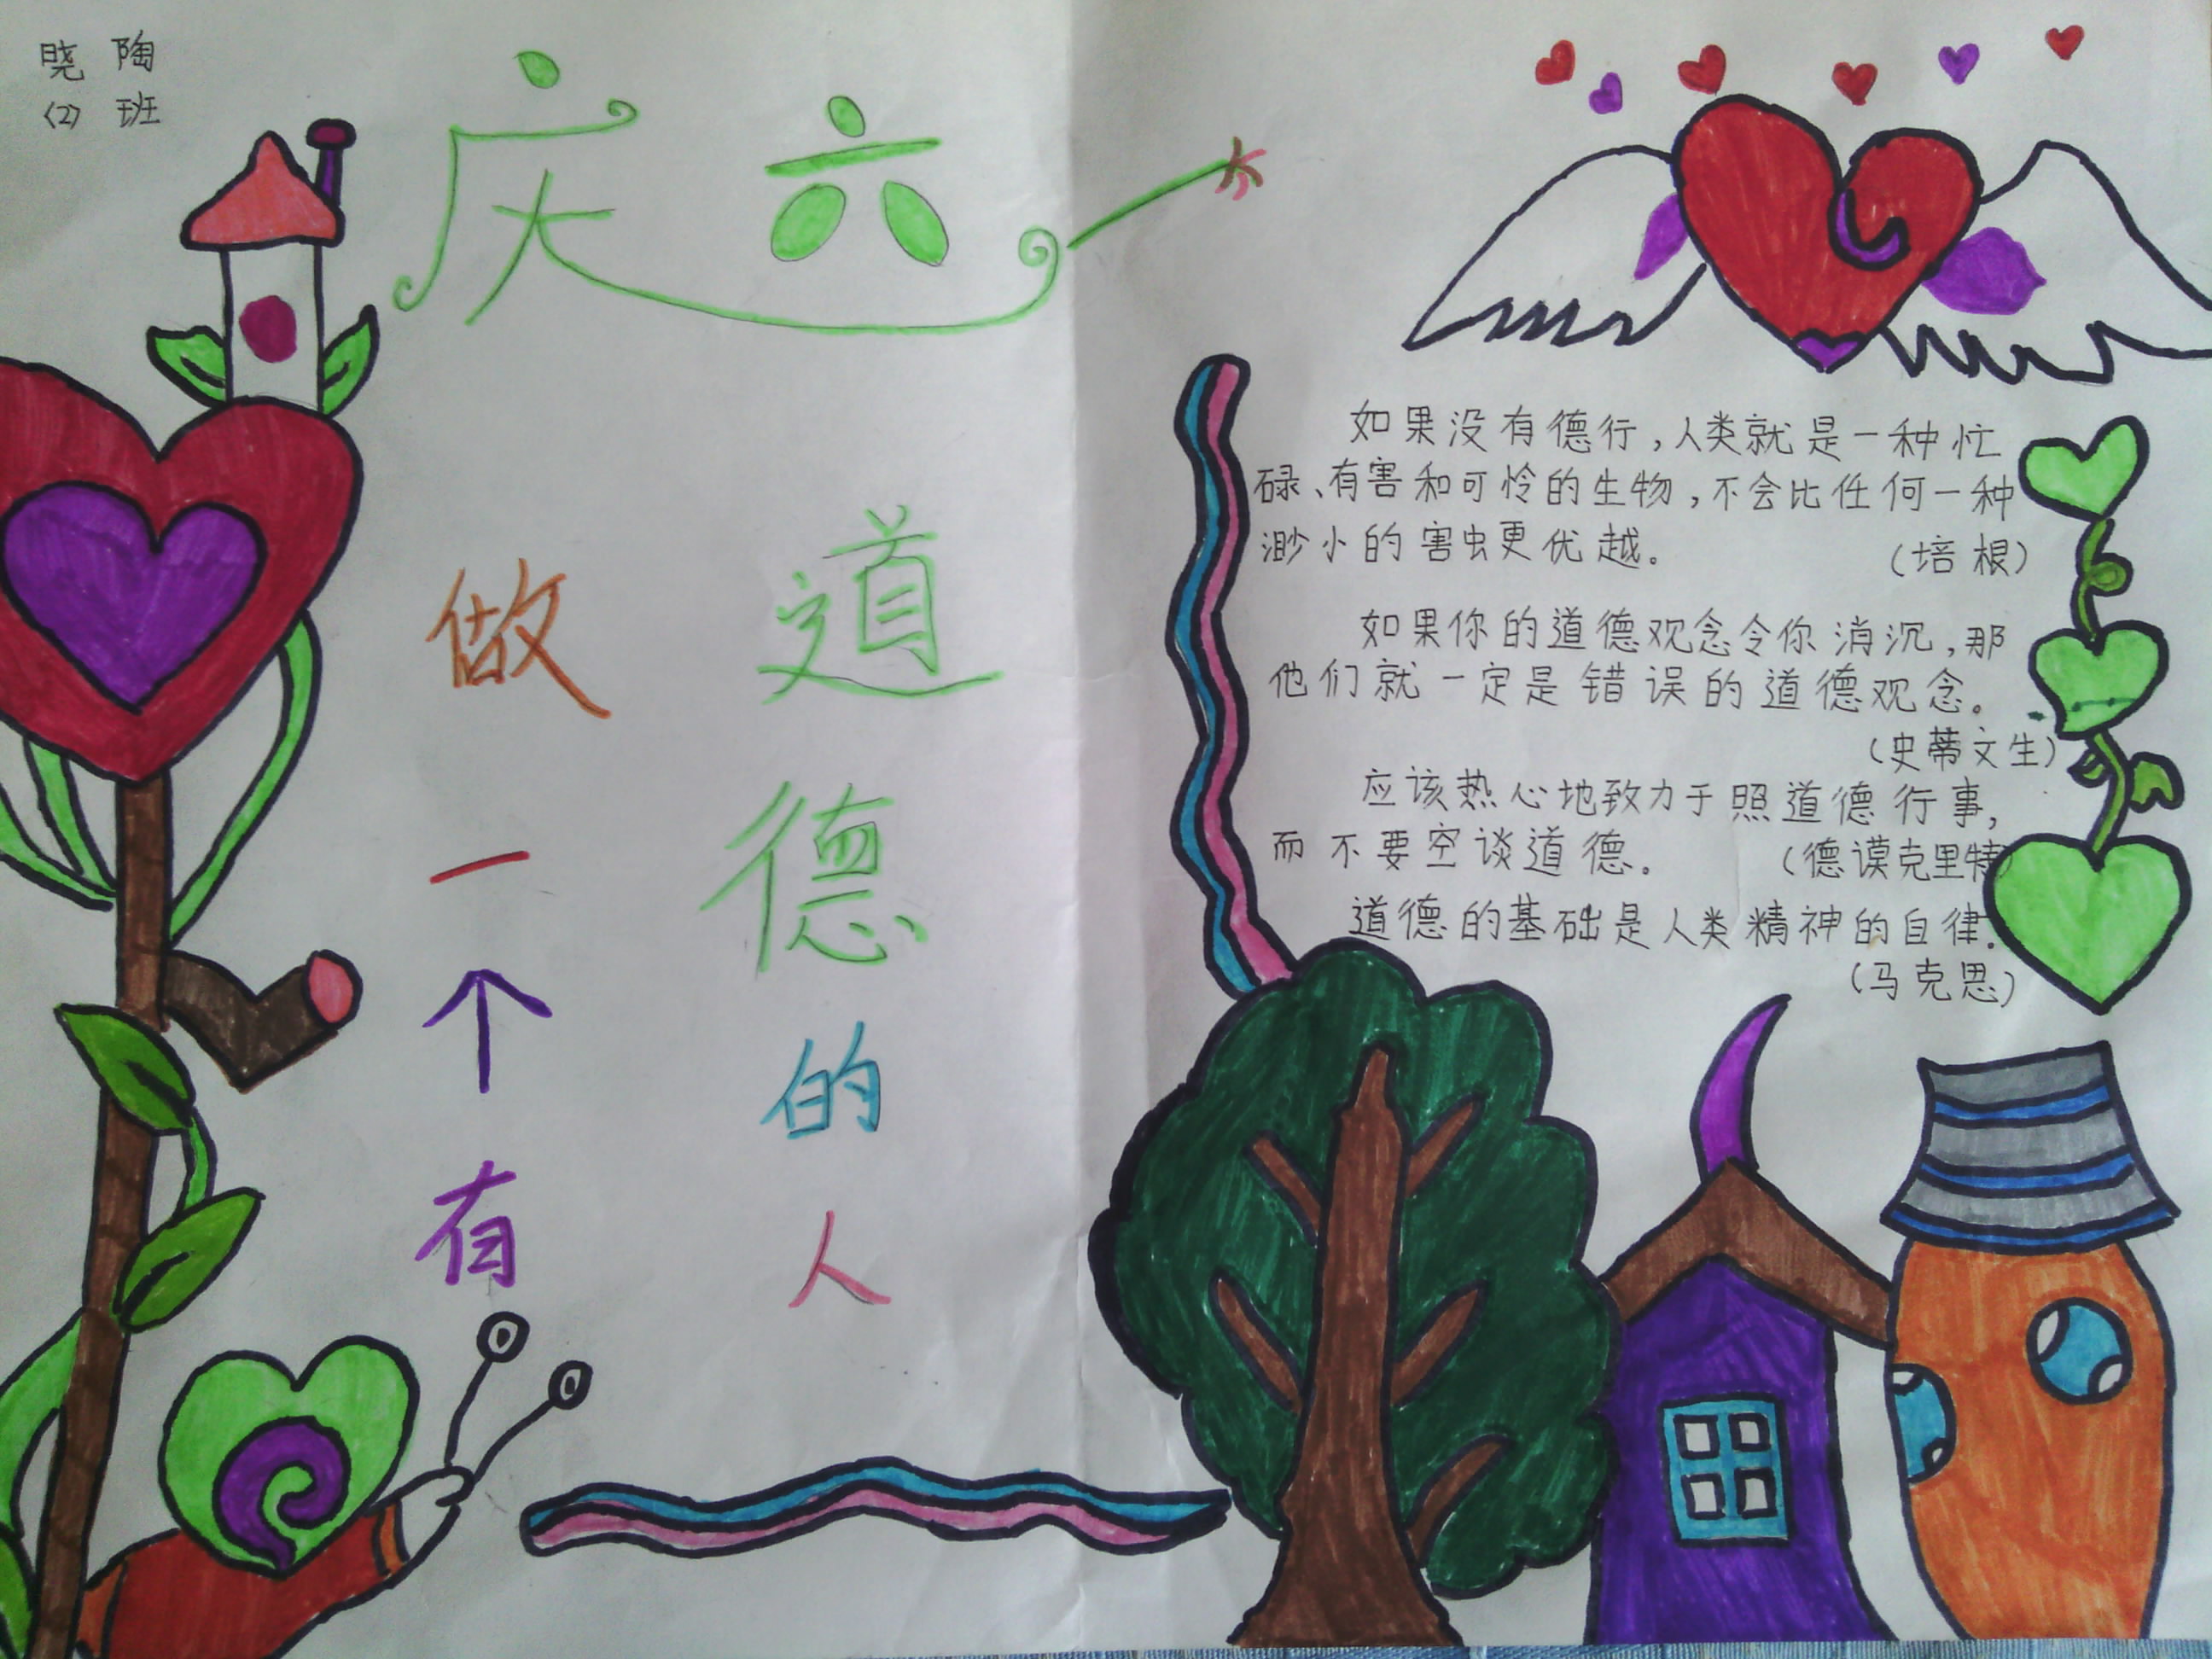 晓 陶
(2) 班
庆六一
做一个有
道德的人
如果没有德行，人类就是一种忙
碌、有害和可怜的生物，不会比任何一种
渺小的害虫更优越。 (培根)
如果你的道德观念令你消沉，那
他们就一定是错误的道德观念。
(史蒂文生)
应该热心地致力于照道德行事，
而不要空谈道德。 (德谟克里特)
道德的基础是人类精神的自律.
(马克思)